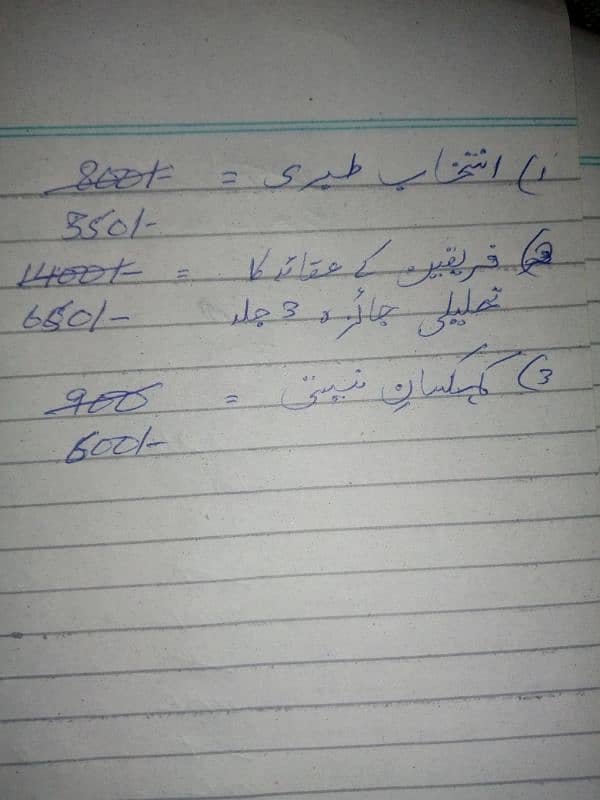 1) انتخاب طبری = 800/-
350/-
2) فریقین کے عقائد کا = 1400/-
تحلیلی جائزہ 3 جلد 650/-
3) کہکسانِ نبیتی = 900
600/-